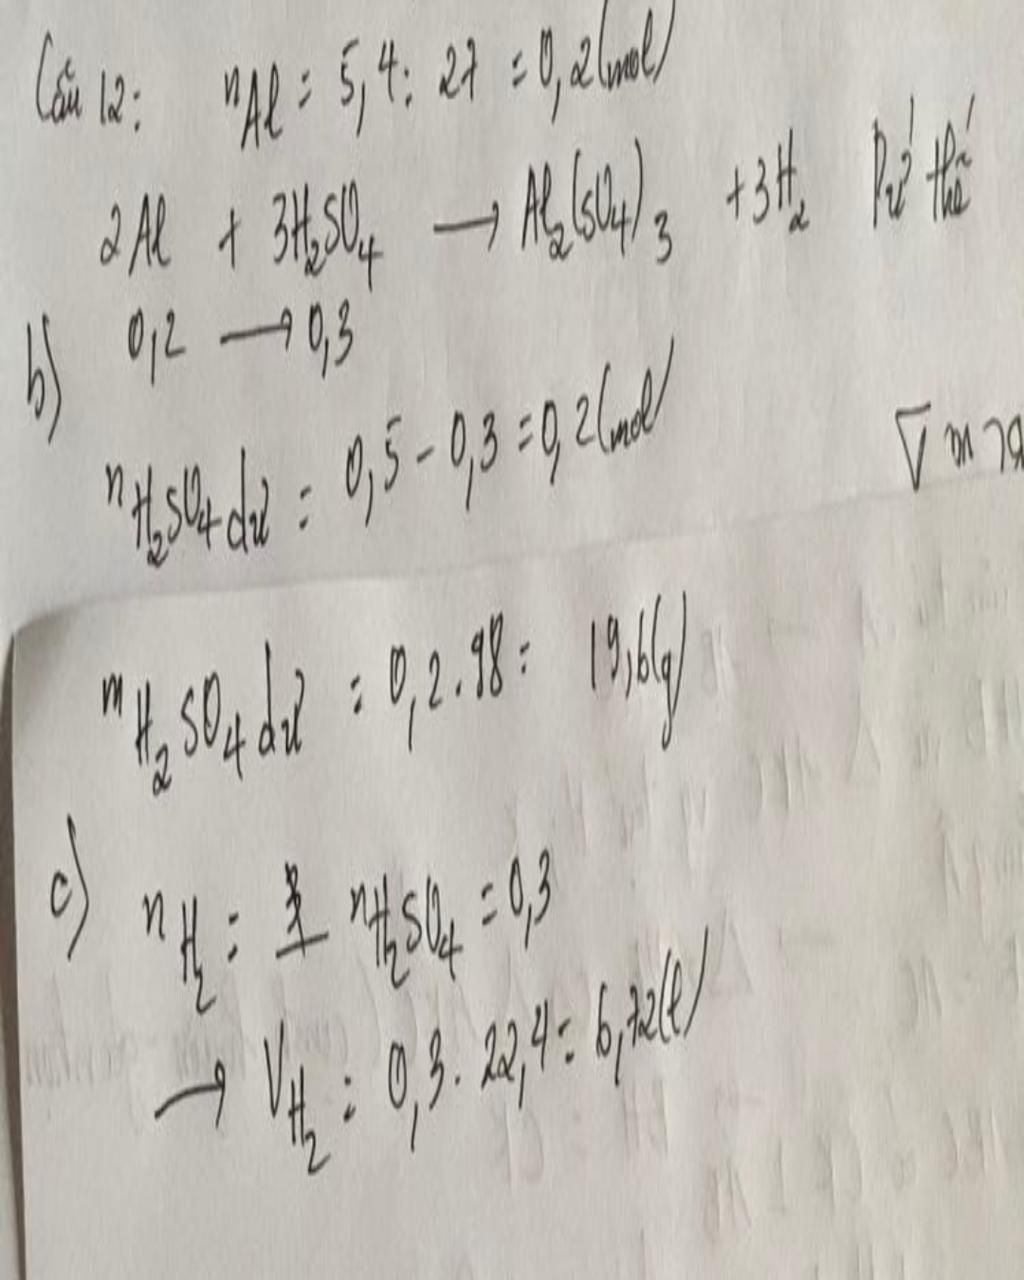 Câu 12: nAl = 5,4 : 27 = 0,2 (mol)
2Al + 3H₂SO₄ → Al₂(SO₄)₃ + 3H₂ Pứ thế
b) 0,2 → 0,3
nH₂SO₄ dư = 0,5 - 0,3 = 0,2 (mol)
mH₂SO₄ dư = 0,2 . 98 = 19,6 (g)
c) nH₂ = nH₂SO₄ = 0,3
→ VH₂ = 0,3 . 22,4 = 6,72 (l)